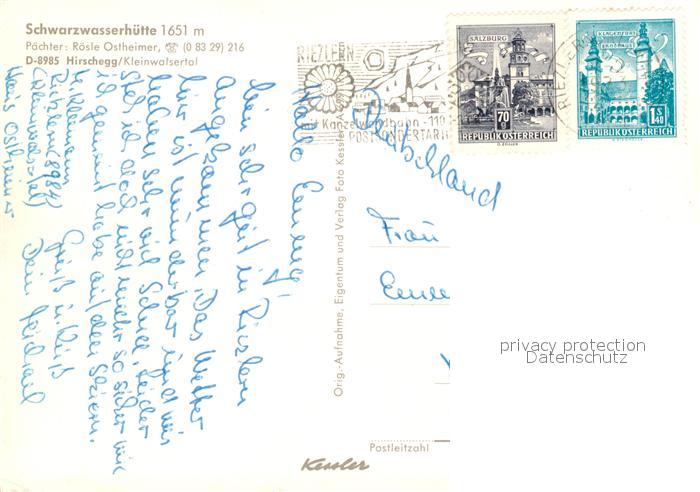 Schwarzwasserhütte 1651 m
Pächter: Rösle Ostheimer, ☎ (0 83 29) 216
D-8985 Hirschegg/Kleinwalsertal
Hallo
bin sehr gut in Riezlern
angekommen. Das Wetter
hier ist wunderbar und wir
haben sehr viel Schnee, leider
steh ich doch nicht mehr so sicher wie
ich gemeint habe auf den Skiern.
Gruß u. Kuß
Dein
Riezlern 8984
(Kleinwalsertal)
Haus Ostheimer
Orig.-Aufnahme, Eigentum und Verlag Foto Kessler, 
Kessler
RIEZLERN
mit Kanzelwandbahn - 110
POSTSONDERTARIF
SALZBURG
70
REPUBLIK ÖSTERREICH
KLAGENFURT
LANDHAUS
1S40
REPUBLIK ÖSTERREICH
RIEZLERN
Deutschland
Frau
Postleitzahl
privacy protection
Datenschutz